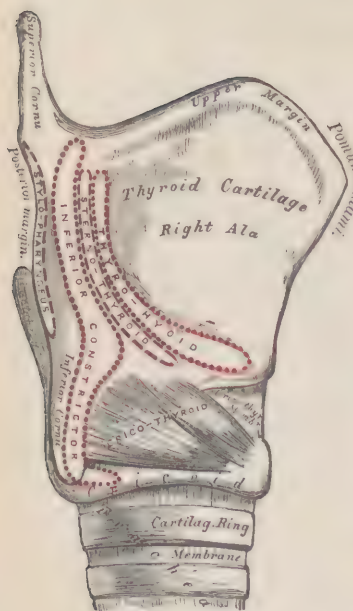 Superior Cornu
Upper Margin
Pomum Adami.
Posterior margin.
STYLO-PHARYNGEUS
Thyroid Cartilage
Right Ala
INFERIOR CONSTRICTOR
STERNO-THYROID
THYRO-HYOID
Inferior Cornu
CRICO-THYROID
Cricoid
Cartilag. Ring
Membrane